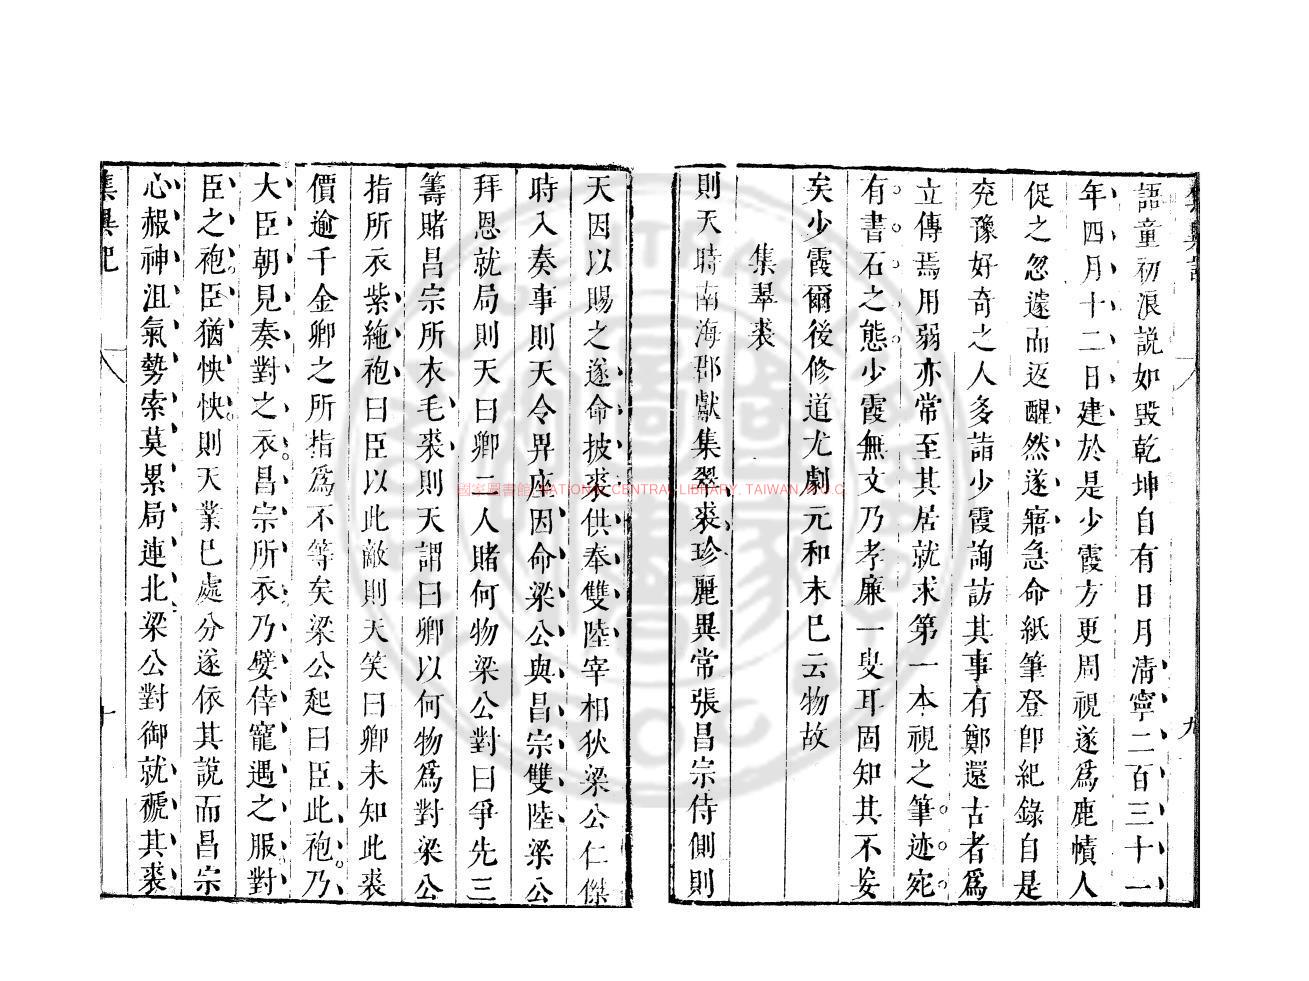 集異記
九
語童初浪說如毀乾坤自有日月清寧二百三十一
年四月十二日建於是少霞方更周視遂為鹿幘人
促之忽遽而返醒然遂寤急命紙筆登即紀錄自是
兗豫好奇之人多詣少霞詢訪其事有鄭還古者為
立傳焉用弱亦常至其居就求第一本視之筆迹宛
有書石之態少霞無文乃孝廉一叟耳固知其不妄
矣少霞爾後修道尤劇元和末已云物故
集翠裘
則天時南海郡獻集翠裘珍麗異常張昌宗侍側則
天因以賜之遂命披裘供奉雙陸宰相狄梁公仁傑
時入奏事則天令畀座因命梁公與昌宗雙陸梁公
拜恩就局則天曰卿二人賭何物梁公對曰爭先三
籌賭昌宗所衣毛裘則天謂曰卿以何物為對梁公
指所衣紫絁袍曰臣以此敵則天笑曰卿未知此裘
價逾千金卿之所指為不等矣梁公起曰臣此袍乃
大臣朝見奏對之衣昌宗所衣乃嬖倖寵遇之服對
臣之袍臣猶怏怏則天業已處分遂依其說而昌宗
心赧神沮氣勢索莫累局連北梁公對御就褫其裘
集異記
十
國家圖書館 NATIONAL CENTRAL LIBRARY, TAIWAN, R.O.C